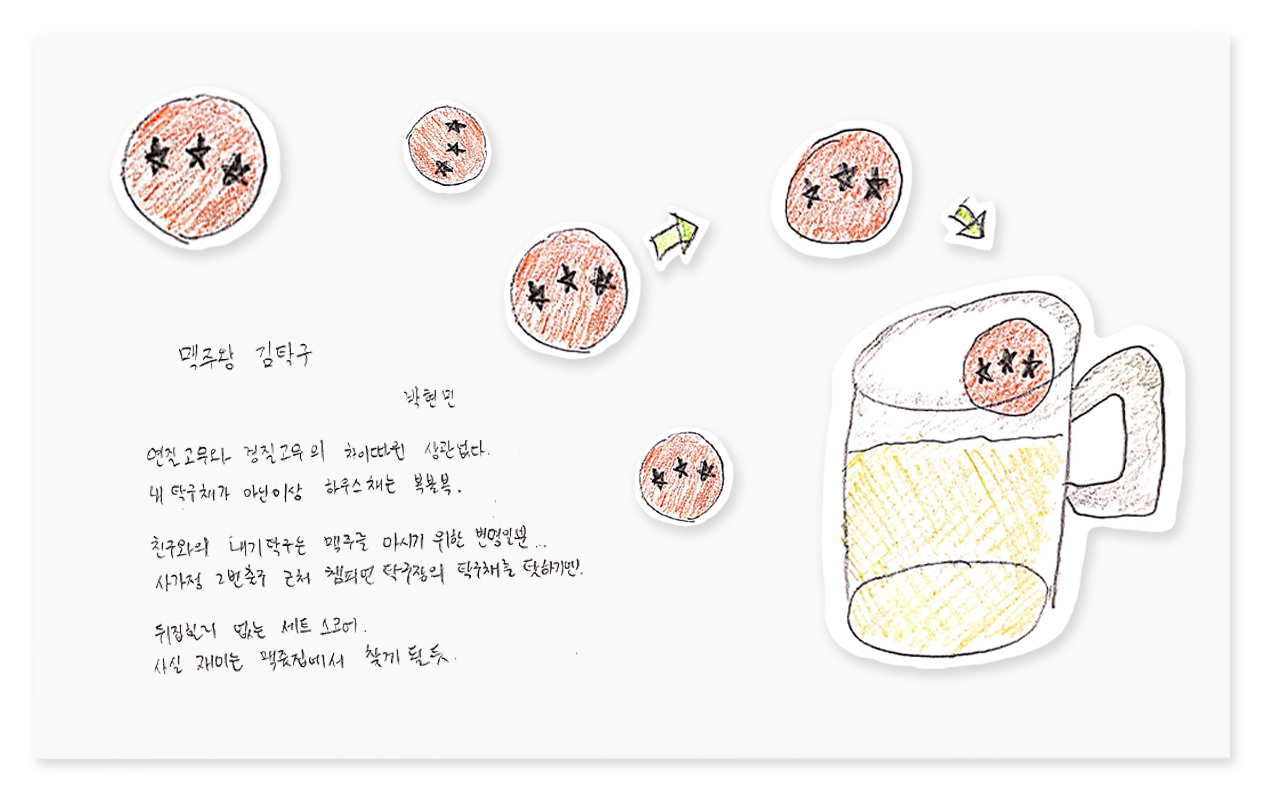 맥주왕 김탁구
박현민
연질고무와 경질고무의 차이따윈 상관없다.
내 탁구채가 아닌이상 하우스채는 복불복.
친구와의 내기탁구는 맥주를 마시기 위한 변명일뿐...
사가정 2번출구 근처 챔피언 탁구장의 탁구채를 탓하기엔!
뒤집힐리 없는 세트 스코어.
사실 재미는 맥줏집에서 찾게 될 듯.